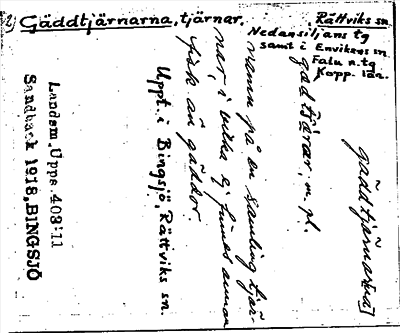 2) Gäddtjärnarna, tjärnar.
Rättviks sn.
Nedansiljans tg
samt i Envikens sn
Falu n. tg
Kopp. län.
gäddtjärnar(na)
gädtjärar, m. pl.
namn på en samling tjär-
nar, i vilka ej finnes annan
fisk än gäddor.
Uppt. i Bingsjö, Rättviks sn.
Landsm. Upps. 403:11
Sandback 1918, BINGSJÖ